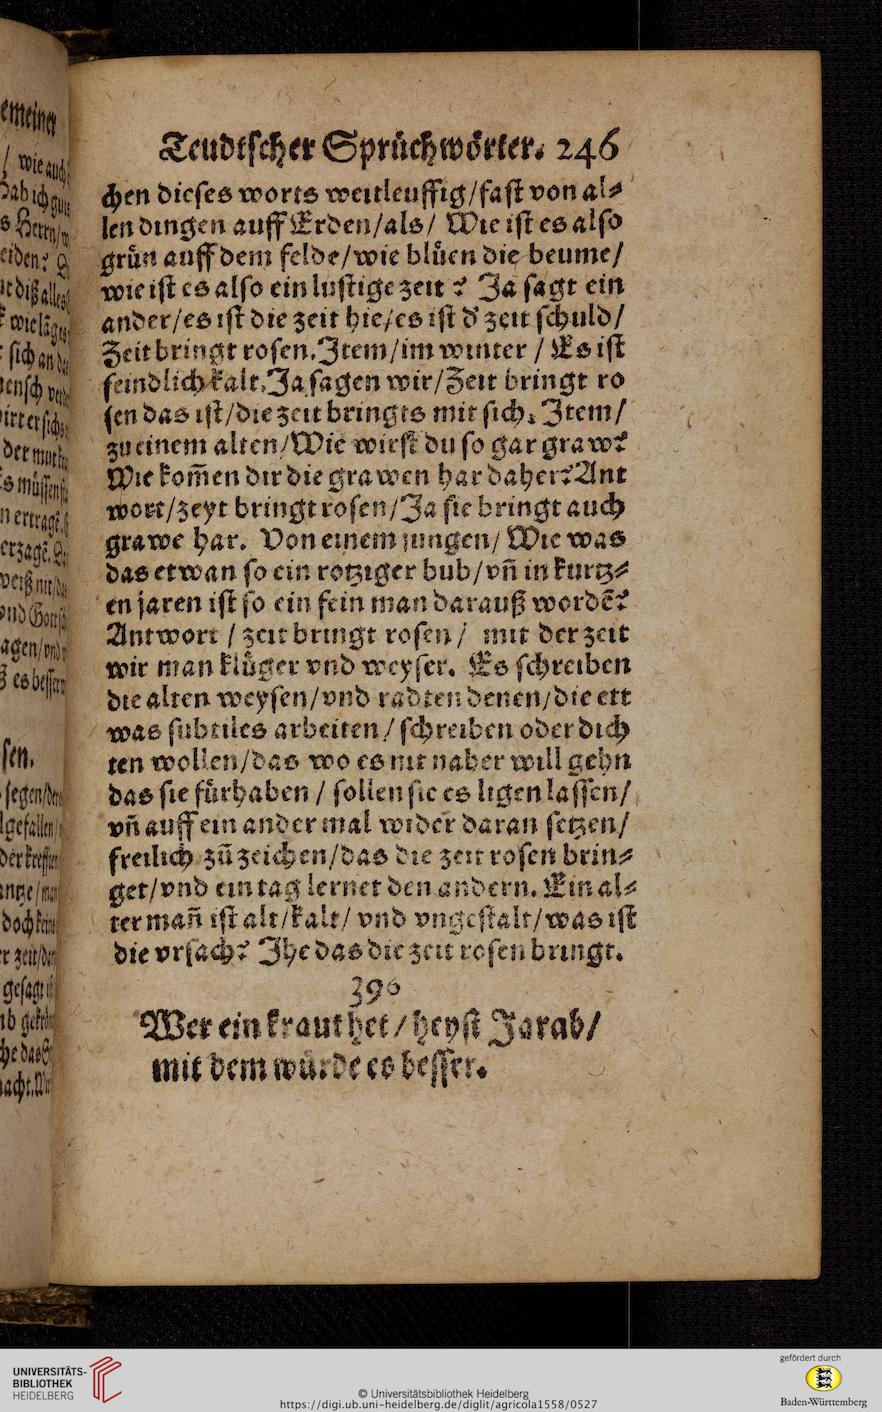 Teudtscher Sprüchwörter. 246
chen dieses worts weitleuffig/fast von al⸗
len dingen auff Erden/als/ Wie ist es also
grün auff dem felde/wie blüen die beume/
wie ist es also ein lustige zeit? Ja sagt ein
ander/es ist die zeit hie/es ist d' zeit schuld/
Zeit bringt rosen. Item/im winter / Es ist
feindlich kalt. Ja sagen wir/Zeit bringt ro
sen das ist/die zeit bringts mit sich. Item/
zu einem alten/Wie wirst du so gar graw?
Wie kom̃en dir die grawen har daher? Ant
wort/zeyt bringt rosen/Ja sie bringt auch
grawe har. Von einem jungen/ Wie was
das etwan so ein rotziger bub/vñ in kurtz⸗
en jaren ist so ein fein man darauß wordẽ?
Antwort / zeit bringt rosen/ mit der zeit
wir man klüger vnd weyser. Es schreiben
die alten weysen/vnd radten denen/die ett
was subtiles arbeiten/ schreiben oder dich
ten wollen/das wo es nit naher will gehn
das sie fürhaben / sollen sie es ligen lassen/
vñ auff ein ander mal wider daran setzen/
freilich zů zeichen/das die zeit rosen brin⸗
get/vnd ein tag lernet den andern. Ein al⸗
ter mañ ist alt/kalt/ vnd vngestalt/was ist
die vrsach? Ihe das die zeit rosen bringt.
390
Wer ein kraut het/ heyst Jarab/
mit dem würde es besser.
UNIVERSITÄTS-
BIBLIOTHEK
HEIDELBERG
© Universitätsbibliothek Heidelberg
https://digi.ub.uni-heidelberg.de/diglit/agricola1558/0527
gefördert durch
Baden-Württemberg